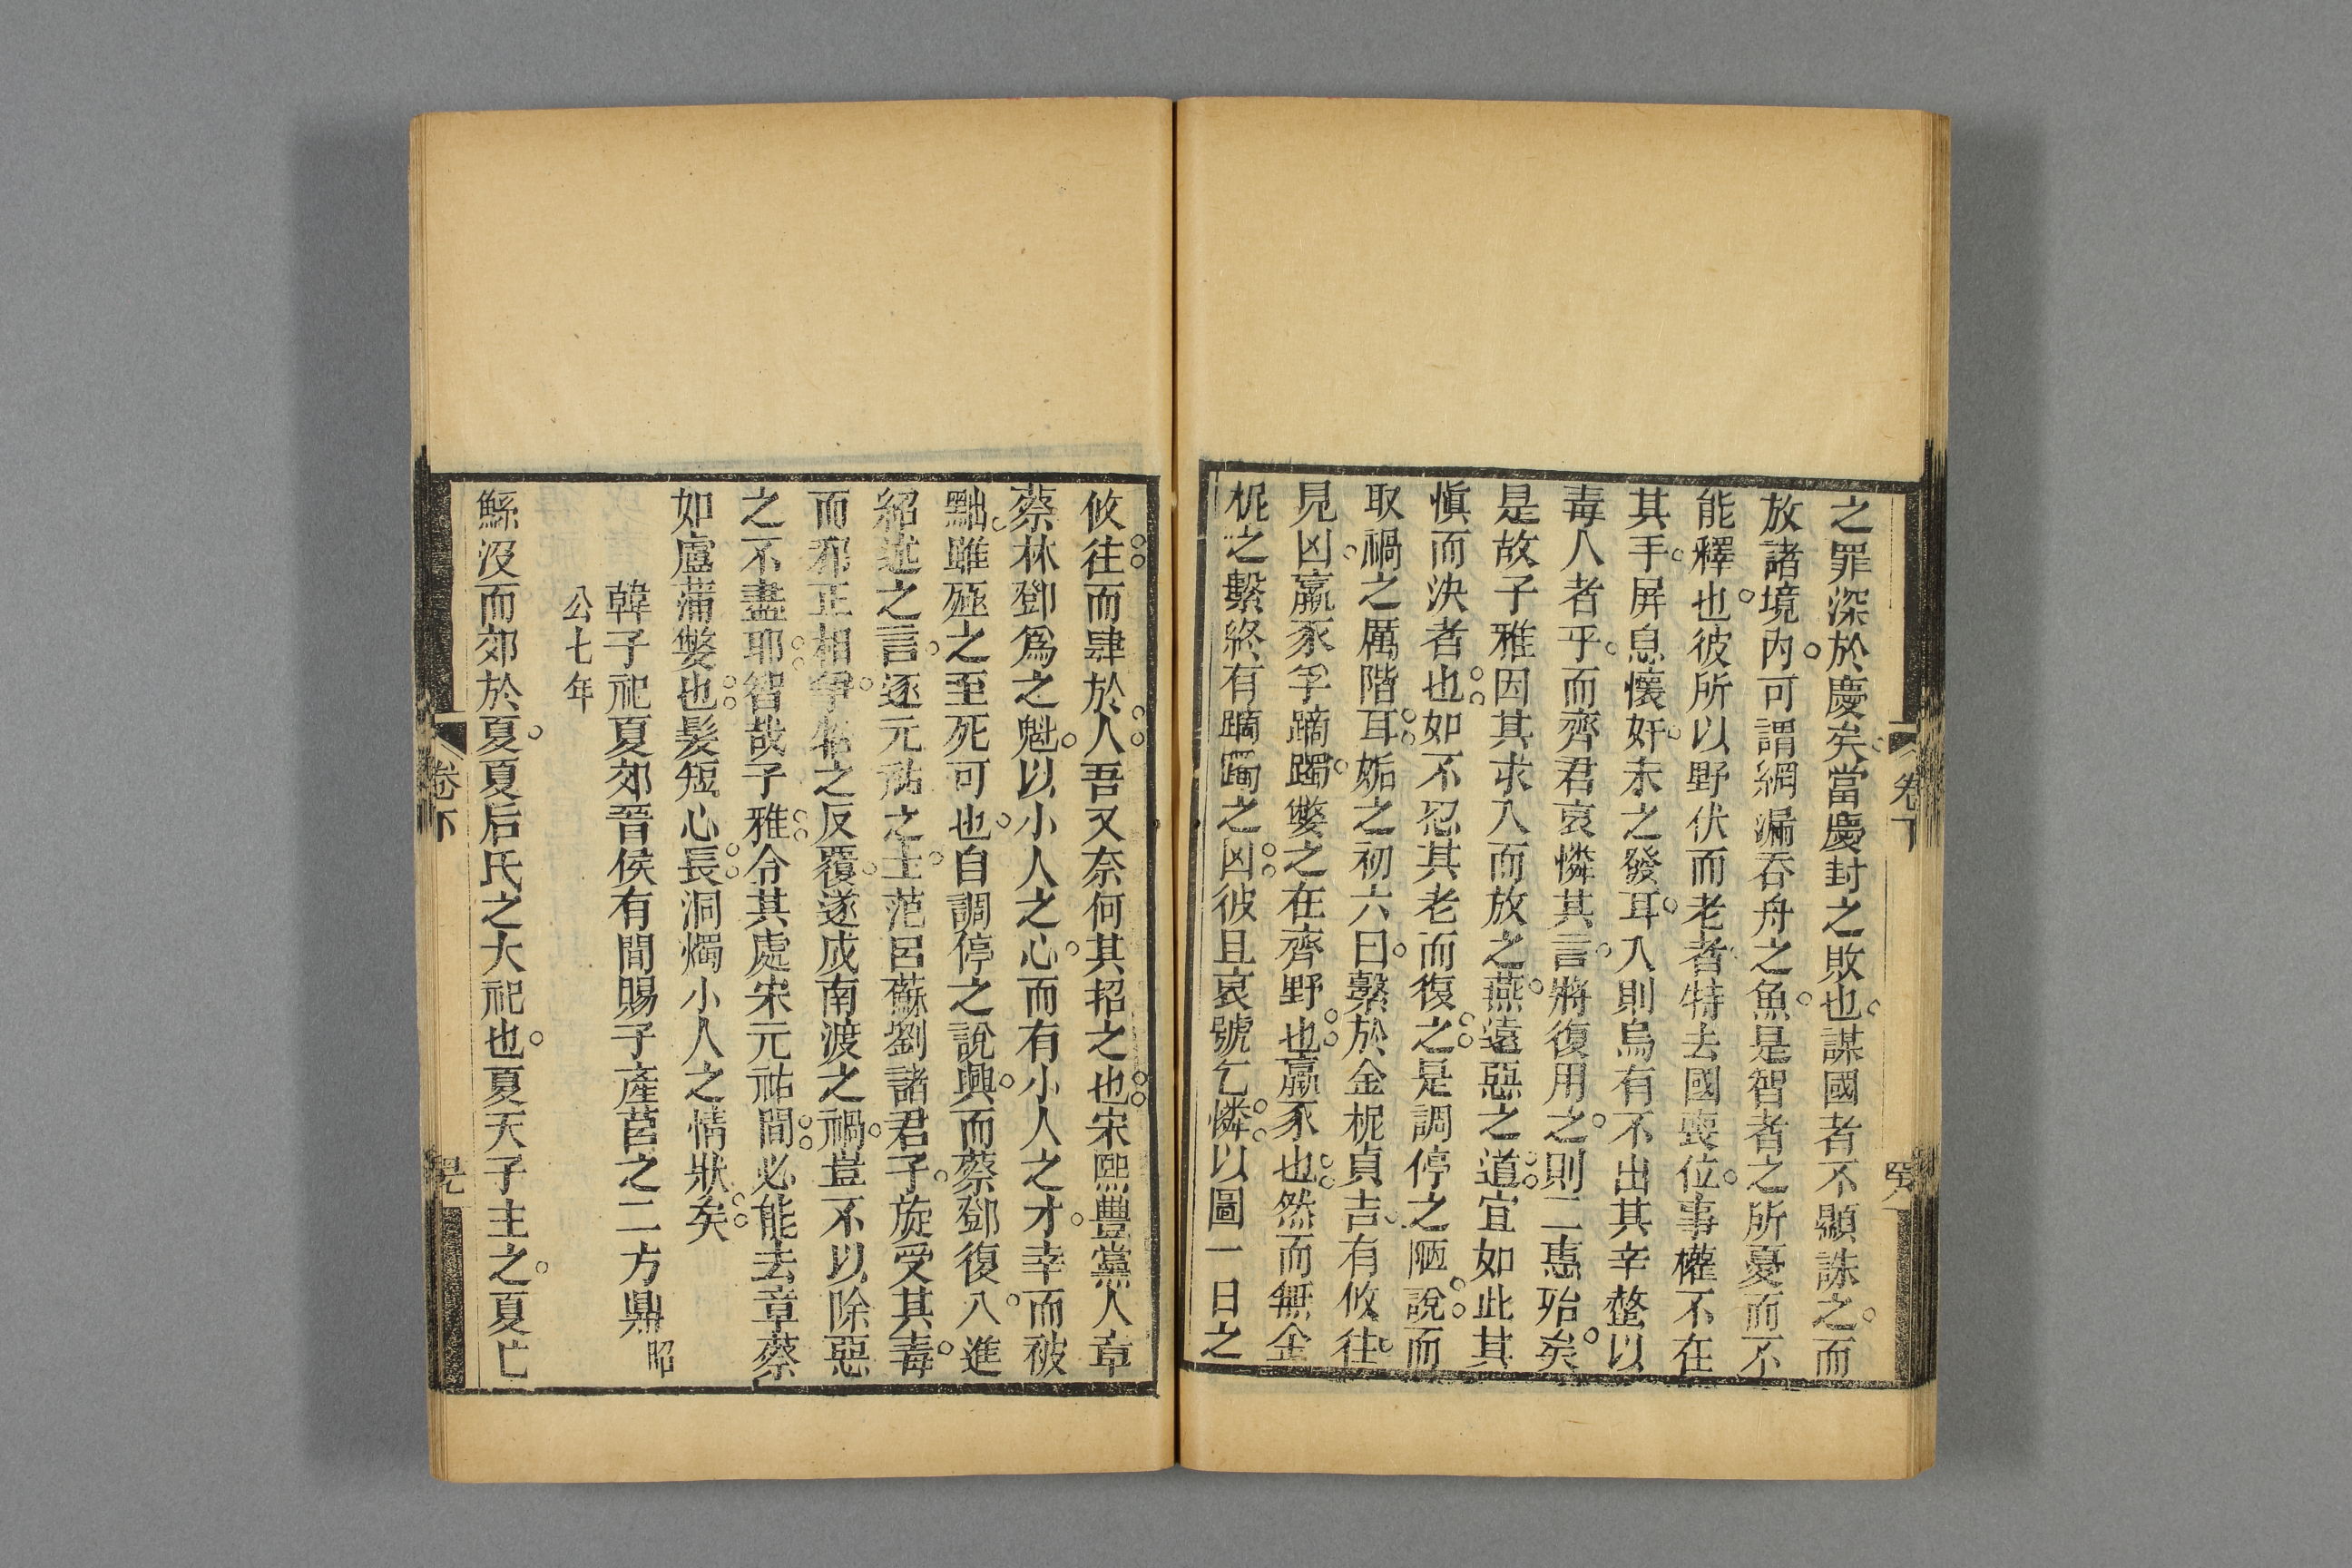 之罪深於慶矣當慶封之敗也謀國者不顯誅之而
放諸境內可謂網漏吞舟之魚是智者之所憂而不
能釋也彼所以野伏而老者特去國喪位事權不在
其手屏息懷奸未之發耳入則烏有不出其辛螫以
毒人者乎而齊君哀憐其言將復用之則二惠殆矣
是故子雅因其求入而放之燕遠惡之道宜如此其
愼而決者也如不忍其老而復之是調停之陋說而
取禍之厲階耳姤之初六曰繫於金柅貞吉有攸往
見凶羸豕孚蹢躅嫳之在齊野也羸豕也然而無金
柅之繫終有蹢躅之凶彼且哀號乞憐以圖一日之
攸往而肆於人吾又奈何其招之也宋熙豐黨人章
蔡林鄧爲之魁以小人之心而有小人之才幸而被
黜雖殛之至死可也自調停之說興而蔡鄧復入進
紹述之言逐元祐之主范呂蘇劉諸君子旋受其毒
而邪正相爭之反覆遂成南渡之禍豈不以除惡
之不盡耶智哉子雅令其處宋元祐間必能去章蔡
如盧蒲嫳也髮短心長洞燭小人之情狀矣
韓子祀夏郊晉侯有間賜子產莒之二方鼎昭
公七年
鯀沒而郊於夏夏后氏之大祀也夏天子主之夏亡
卷下
卷下